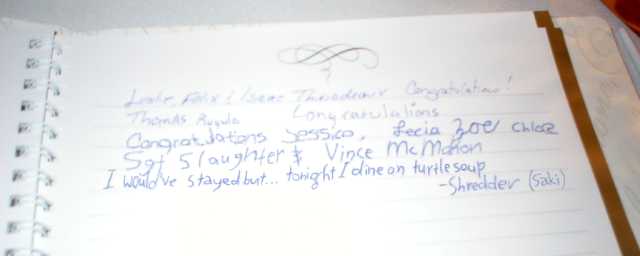 Leslie, Felix & Isaac Thibodeaux Congratulations!
Thomas Rugula Congratulations
Congratulations Jessica, Lecia Zoe Chloe
Sgt Slaughter & Vince McMahon
I would've stayed but... tonight I dine on turtle soup
-Shredder (Saki)